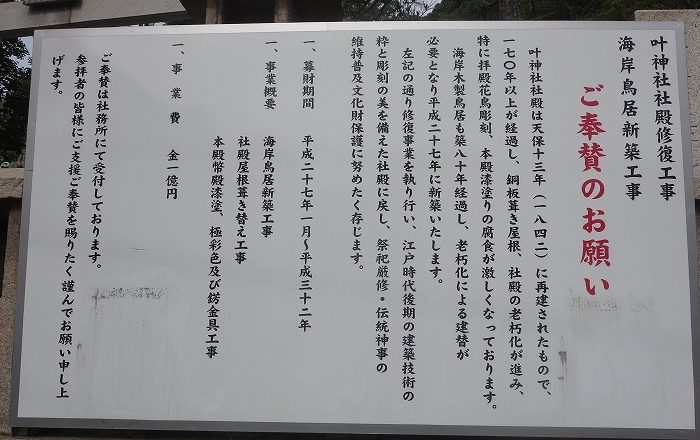 叶神社社殿修復工事
海岸鳥居新築工事
ご奉賛のお願い
叶神社社殿は天保十三年(一八四二)に再建されたもので、
一七〇年以上が経過し、銅板葺き屋根、社殿の老朽化が進み、
特に拝殿花鳥彫刻、本殿漆塗りの腐食が激しくなっております。
海岸木製鳥居も築八十年経過し、老朽化による建替が
必要となり平成二十七年に新築いたします。
左記の通り修復事業を執り行い、江戸時代後期の建築技術の
粋と彫刻の美を備えた社殿に戻し、祭祀厳修・伝統神事の
維持普及文化財保護に努めたく存じます。
一、募財期間 平成二十七年一月~平成三十二年
一、事業概要 海岸鳥居新築工事
社殿屋根葺き替え工事
本殿幣殿漆塗、極彩色及び錺金具工事
一、事業費 金一億円
ご奉賛は社務所にて受付しております。
参拝者の皆様にご支援ご奉賛を賜りたく謹んでお願い申し上
げます。